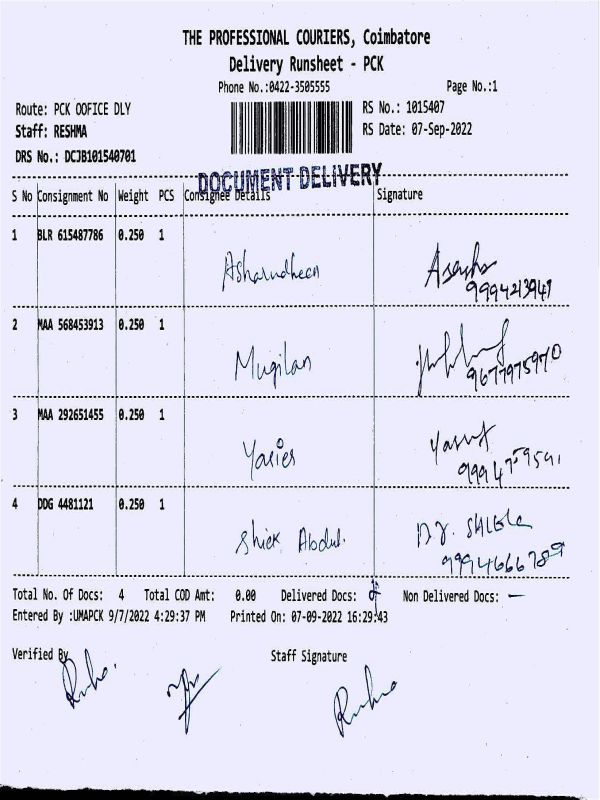 THE PROFESSIONAL COURIERS, Coimbatore
Delivery Runsheet - PCK
Phone No.:0422-3505555 Page No.:1
Route: PCK OOFICE DLY RS No.: 1015407
Staff: RESHMA RS Date: 07-Sep-2022
DRS No.: DCJB101540701
DOCUMENT DELIVERY
S No Consignment No Weight PCS Consignee Details Signature
1 BLR 615487786 0.250 1
Asharudheen
9994213941
2 MAA 568453913 0.250 1
Mugilan
9677975970
3 MAA 292651455 0.250 1
Yasies Yasuf
9994759591
4 DDG 4481121 0.250 1
Shiek Abdul.
9994666789
Total No. Of Docs: 4 Total COD Amt: 0.00 Delivered Docs: Non Delivered Docs: —
Entered By :UMAPCK 9/7/2022 4:29:37 PM Printed On: 07-09-2022 16:29:43
Verified By Staff Signature